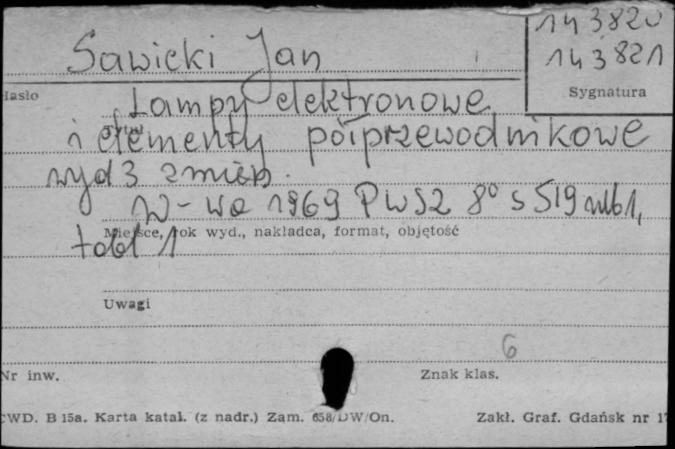 143820
Sawicki Jan
143821
Hasło
Sygnatura
Lampy elektronowe
i elementy półprzewodnikowe
wyd 3 zmien.
W-wa 1969 PWSZ 8° s 519 nlb 1,
tabl 1
Miejsce, rok wyd., nakładca, format, objętość
Uwagi
6
Nr inw.
Znak klas.
CWD. B 15a. Karta katal. (z nadr.) Zam. 658/DW/On.
Zakł. Graf. Gdańsk nr